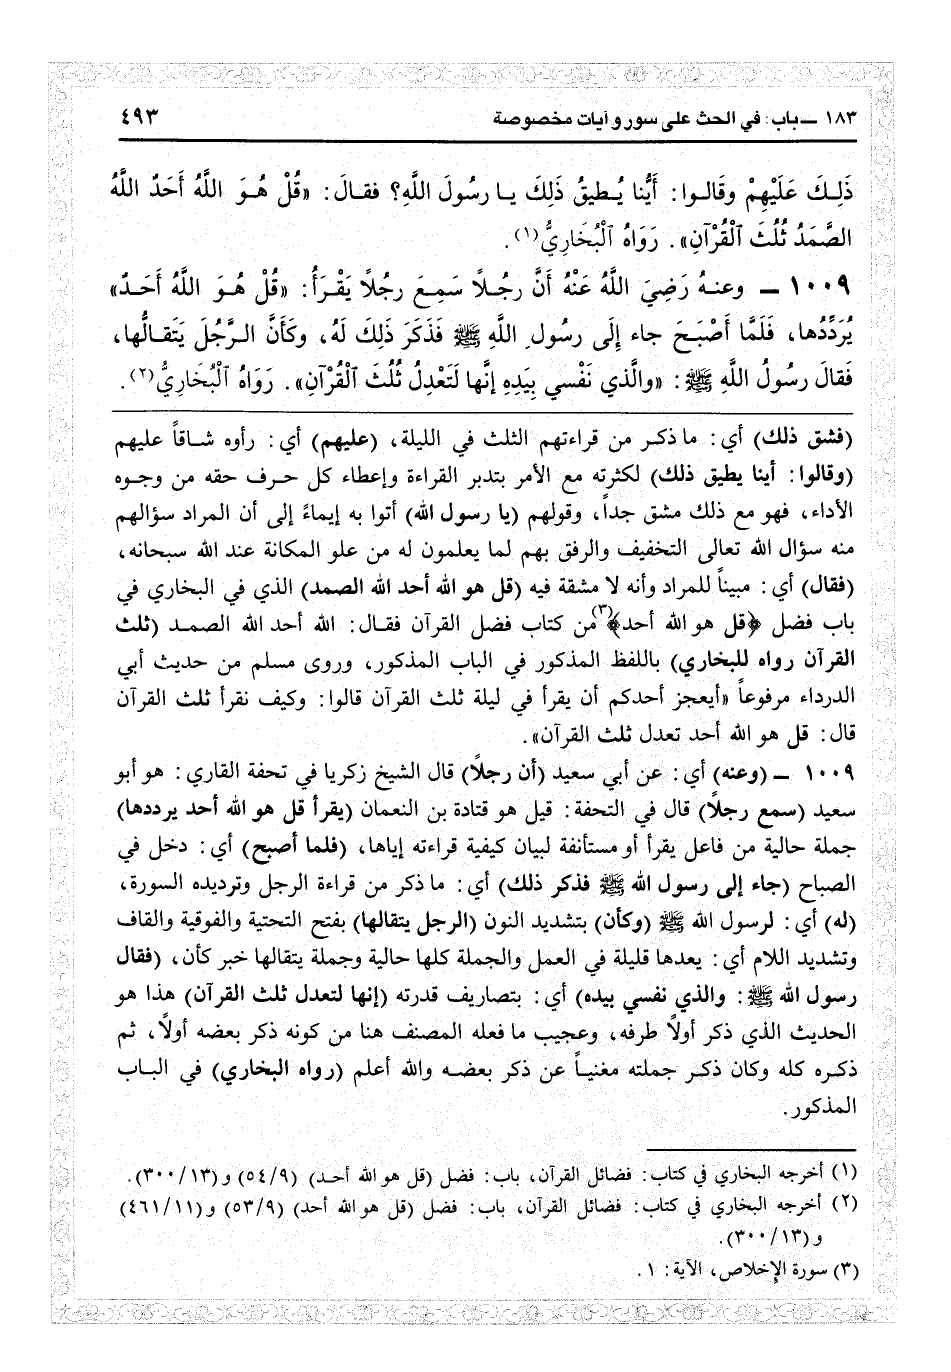 ١٨٣ ـ باب: في الحث على سور وآيات مخصوصة ٤٩٣
ذَلِكَ عَلَيْهِمْ وقَالوا: أَيُّنا يُطيقُ ذَلِكَ يا رسُولَ اللَّهِ؟ فقالَ: «قُلْ هُوَ اللَّهُ أَحَدٌ اللَّهُ
الصَّمَدُ ثُلُثَ ٱلْقُرْآنِ». رَوَاهُ ٱلْبُخَارِيُّ(١).
١٠٠٩ ـ وعنهُ رَضِيَ اللَّهُ عَنْهُ أَنَّ رجُلاً سَمِعَ رجُلاً يَقْرَأُ: «قُلْ هُوَ اللَّهُ أَحَدٌ»
يُرَدِّدُها، فَلَمَّا أَصْبَحَ جاء إِلَى رسُولِ اللَّهِ ﷺ فَذَكَرَ ذَلِكَ لَهُ، وكَأَنَّ الرَّجُلَ يَتَقالُّها،
فَقالَ رسُولُ اللَّهِ ﷺ: «والَّذي نَفْسي بِيَدِهِ إِنَّها لَتَعْدِلُ ثُلُثَ ٱلْقُرْآنِ». رَوَاهُ ٱلْبُخَارِيُّ(٢).
(فشق ذلك) أي: ما ذكر من قراءتهم الثلث في الليلة، (عليهم) أي: رأوه شاقاً عليهم
(وقالوا: أينا يطيق ذلك) لكثرته مع الأمر بتدبر القراءة وإعطاء كل حرف حقه من وجوه
الأداء، فهو مع ذلك مشق جداً، وقولهم (يا رسول الله) أتوا به إيماءً إلى أن المراد سؤالهم
منه سؤال الله تعالى التخفيف والرفق بهم لما يعلمون له من علو المكانة عند الله سبحانه،
(فقال) أي: مبيناً للمراد وأنه لا مشقة فيه (قل هو الله أحد الله الصمد) الذي في البخاري في
باب فضل ﴿قل هو الله أحد﴾(٣) من كتاب فضل القرآن فقال: الله أحد الله الصمد (ثلث
القرآن رواه للبخاري) باللفظ المذكور في الباب المذكور، وروى مسلم من حديث أبي
الدرداء مرفوعاً «أيعجز أحدكم أن يقرأ في ليلة ثلث القرآن قالوا: وكيف نقرأ ثلث القرآن
قال: قل هو الله أحد تعدل ثلث القرآن».
١٠٠٩ ـ (وعنه) أي: عن أبي سعيد (أن رجلاً) قال الشيخ زكريا في تحفة القاري: هو أبو
سعيد (سمع رجلاً) قال في التحفة: قيل هو قتادة بن النعمان (يقرأ قل هو الله أحد يرددها)
جملة حالية من فاعل يقرأ أو مستأنفة لبيان كيفية قراءته إياها، (فلما أصبح) أي: دخل في
الصباح (جاء إلى رسول الله ﷺ فذكر ذلك) أي: ما ذكر من قراءة الرجل وترديده السورة،
(له) أي: لرسول الله ﷺ (وكأن) بتشديد النون (الرجل يتقالها) بفتح التحتية والفوقية والقاف
وتشديد اللام أي: يعدها قليلة في العمل والجملة كلها حالية وجملة يتقالها خبر كأن، (فقال
رسول الله ﷺ: والذي نفسي بيده) أي: بتصاريف قدرته (إنها لتعدل ثلث القرآن) هذا هو
الحديث الذي ذكر أولاً طرفه، وعجيب ما فعله المصنف هنا من كونه ذكر بعضه أولاً، ثم
ذكره كله وكان ذكر جملته مغنياً عن ذكر بعضه والله أعلم (رواه البخاري) في الباب
المذكور.
(١) أخرجه البخاري في كتاب: فضائل القرآن، باب: فضل (قل هو الله أحد) (٥٤/٩) و(٣٠٠/١٣).
(٢) أخرجه البخاري في كتاب: فضائل القرآن، باب: فضل (قل هو الله أحد) (٥٣/٩) و(٤٦١/١١)
و(٣٠٠/١٣).
(٣) سورة الإخلاص، الآية: ١.